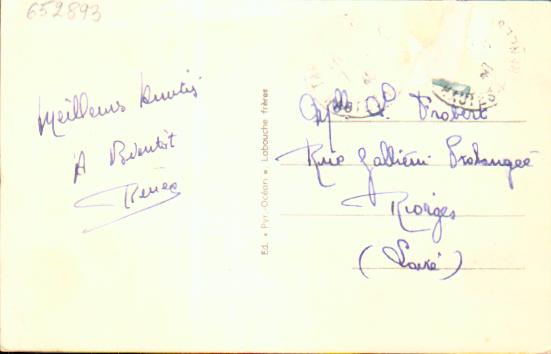 652893
Meilleures Amitiés
A Bientôt
Renée
Ed. * Pyr.-Océan * Labouche Frères
Probert
Rue Galliéni Prolongée
Riorges
(Loire)